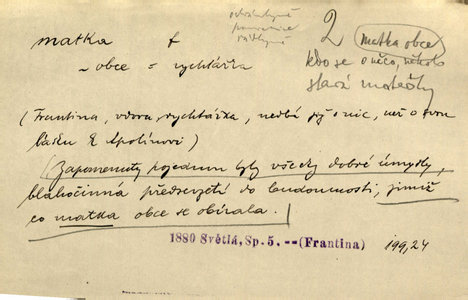 matka f
2
matka obce
~ obce = rychtářka
kdo se o něco, někoho
stará mateřsky
(Frantina, vdova, rychtářka, nedbá prý o nic, než o svou
lásku k Apolínovi)
Zapomenuty pojednou byly všecky dobré úmysly,
blahočinná předsevzetí do budoucnosti, jimiž
co matka obce se obírala.
1880 Světlá, Sp. 5. --(Frantina) 199,24